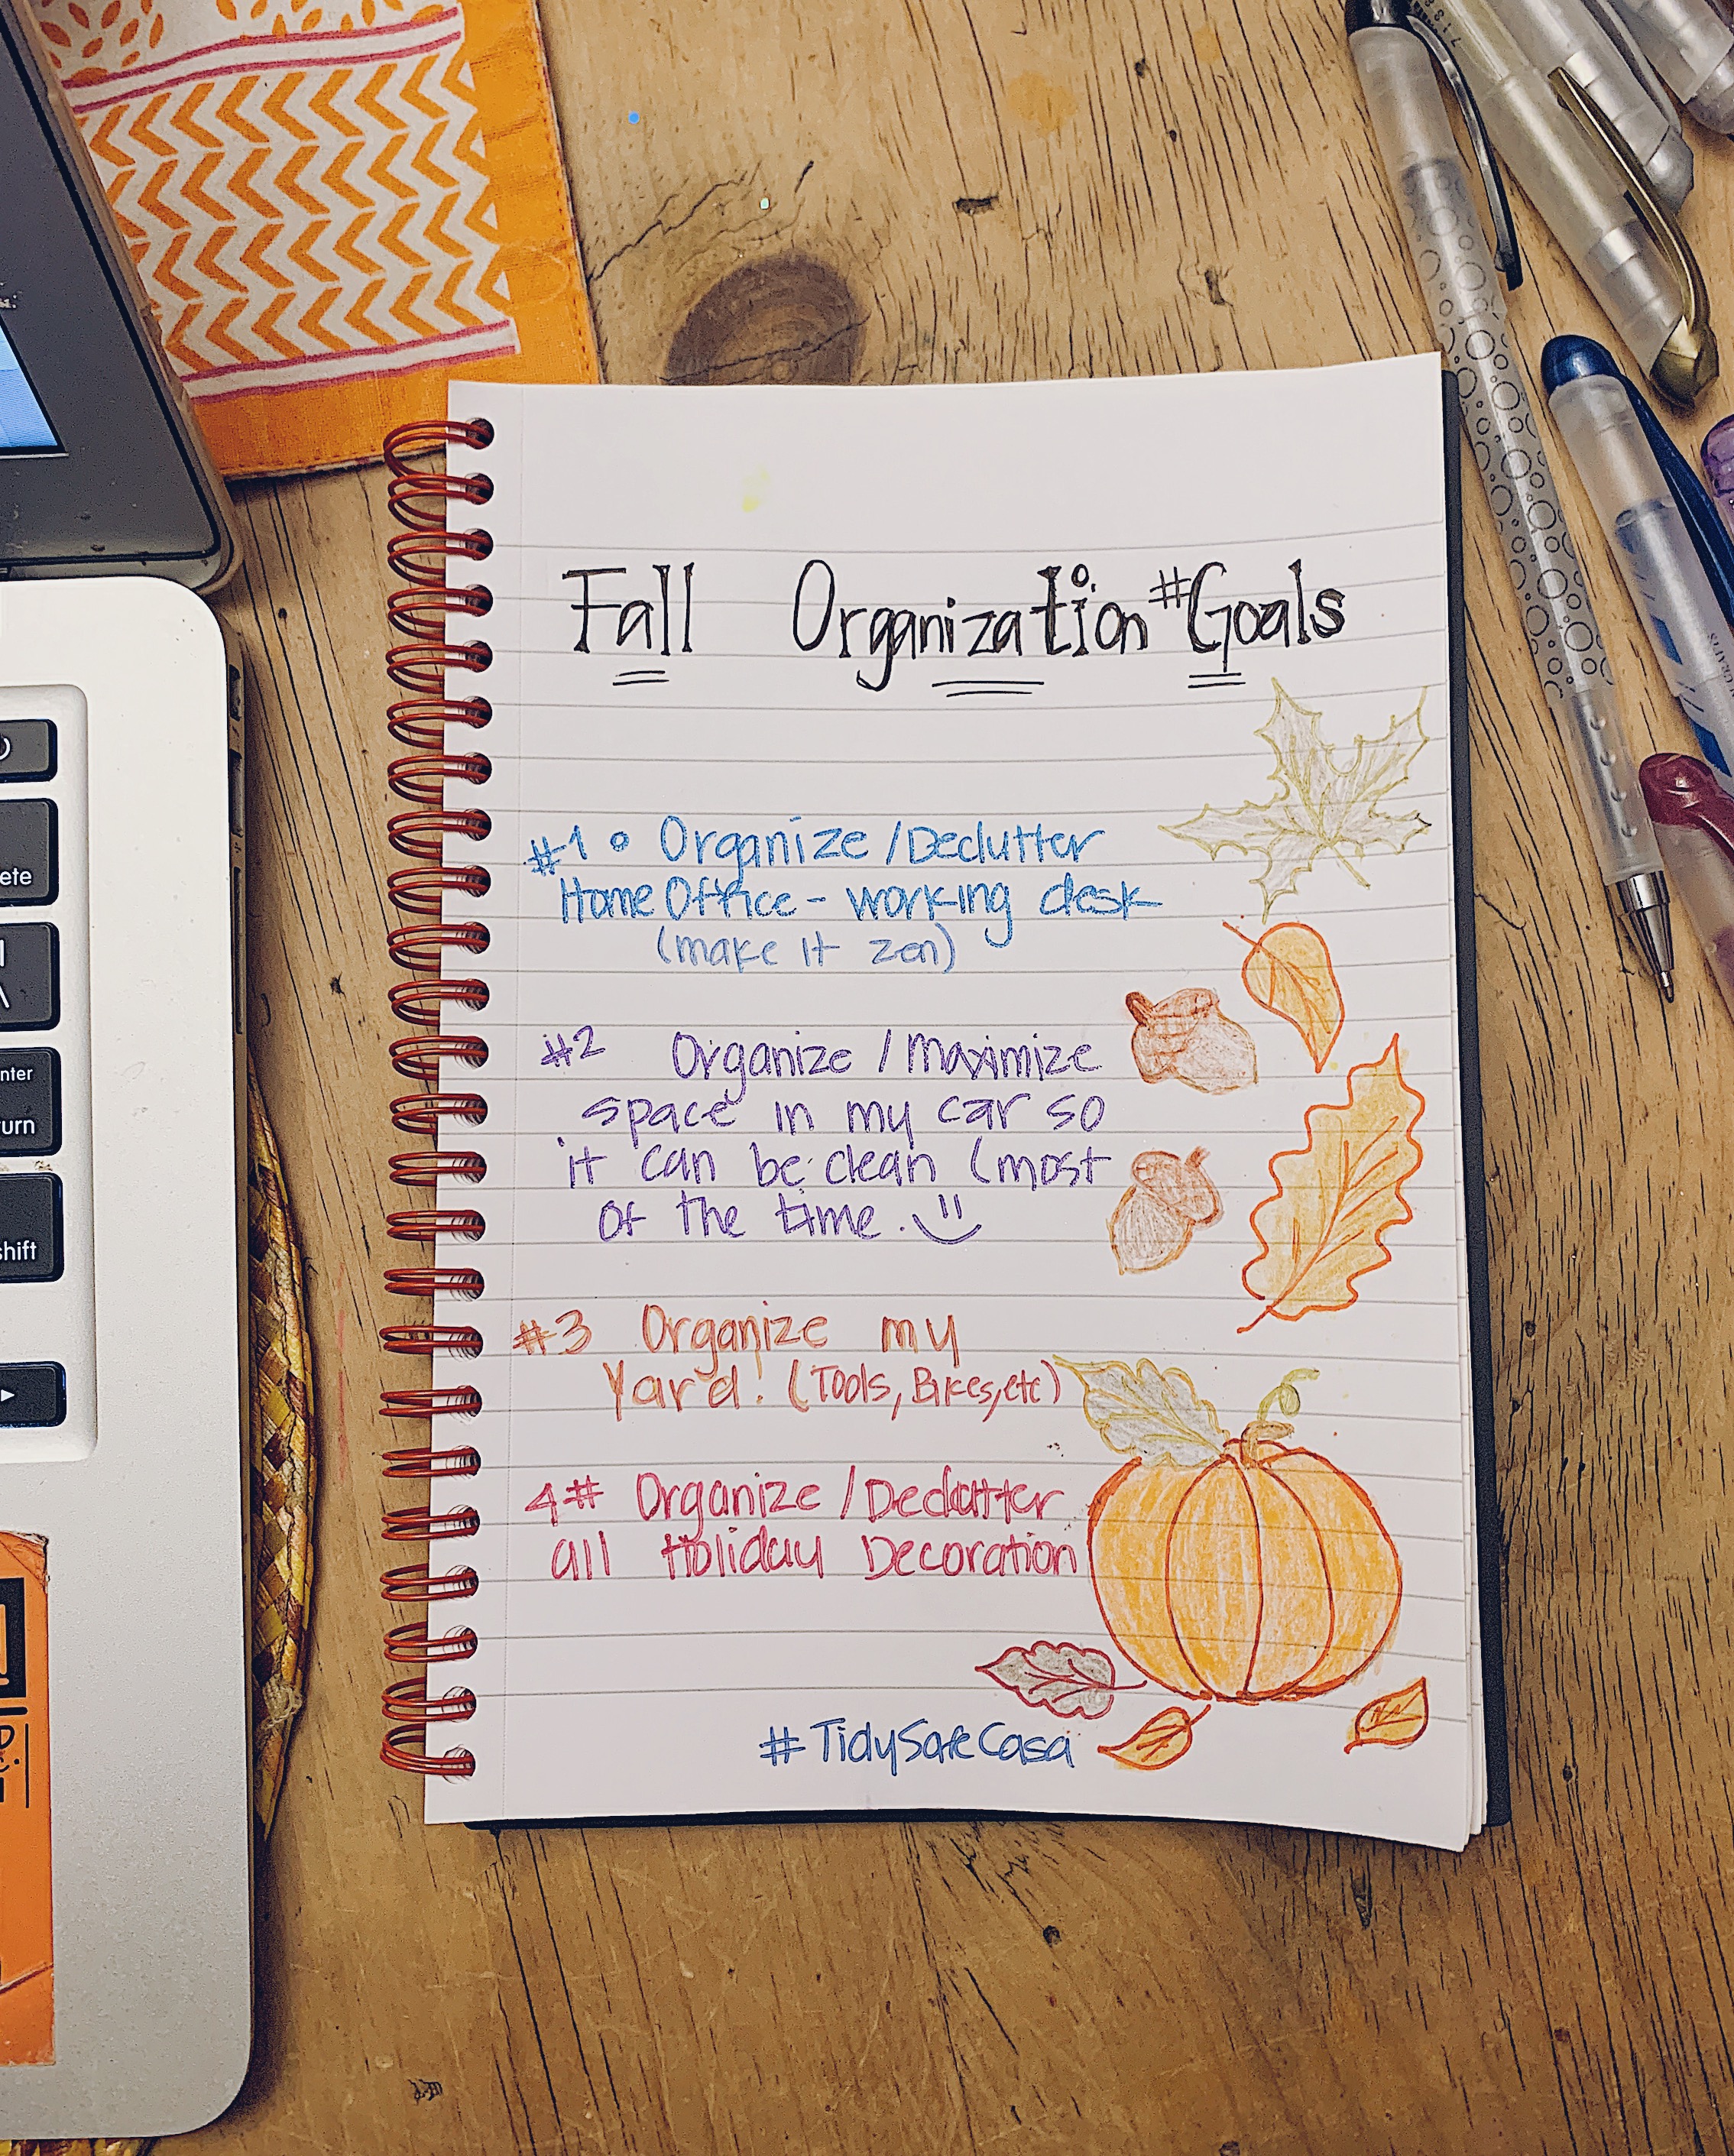 Fall Organization #Goals
#1 • Organize / Declutter
Home Office - working desk
(make it zen)
#2 Organize / Maximize
space in my car so
it can be clean (most
of the time.
#3 Organize my
Yard! (Tools, Bikes, etc)
4# Organize / Declutter
all Holiday Decoration
#TidySafeCasa
ete
nter
urn
shift